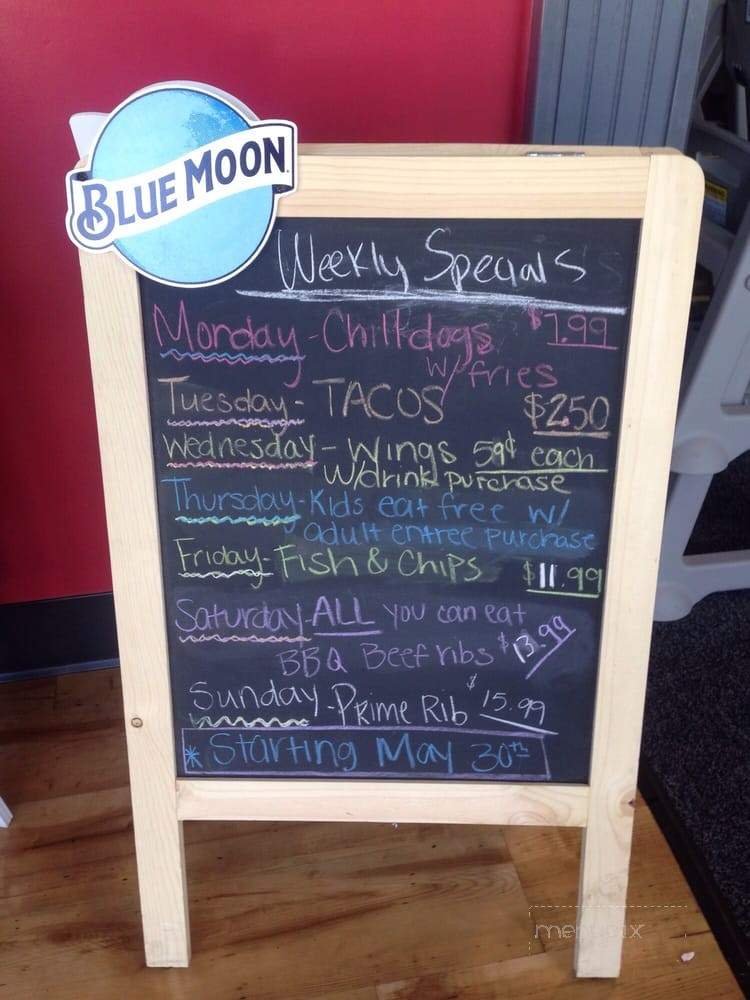 BLUE MOON
Weekly Specials
Monday - Chili dogs $7.99
w/ fries
Tuesday - TACOS $2.50
Wednesday - Wings 59¢ each
w/drink purchase
Thursday - Kids eat free w/
adult entree purchase
Friday - Fish & Chips $11.99
Saturday - ALL you can eat
BBQ Beef ribs $13.99
Sunday - Prime Rib $15.99
* Starting May 30th
menupix